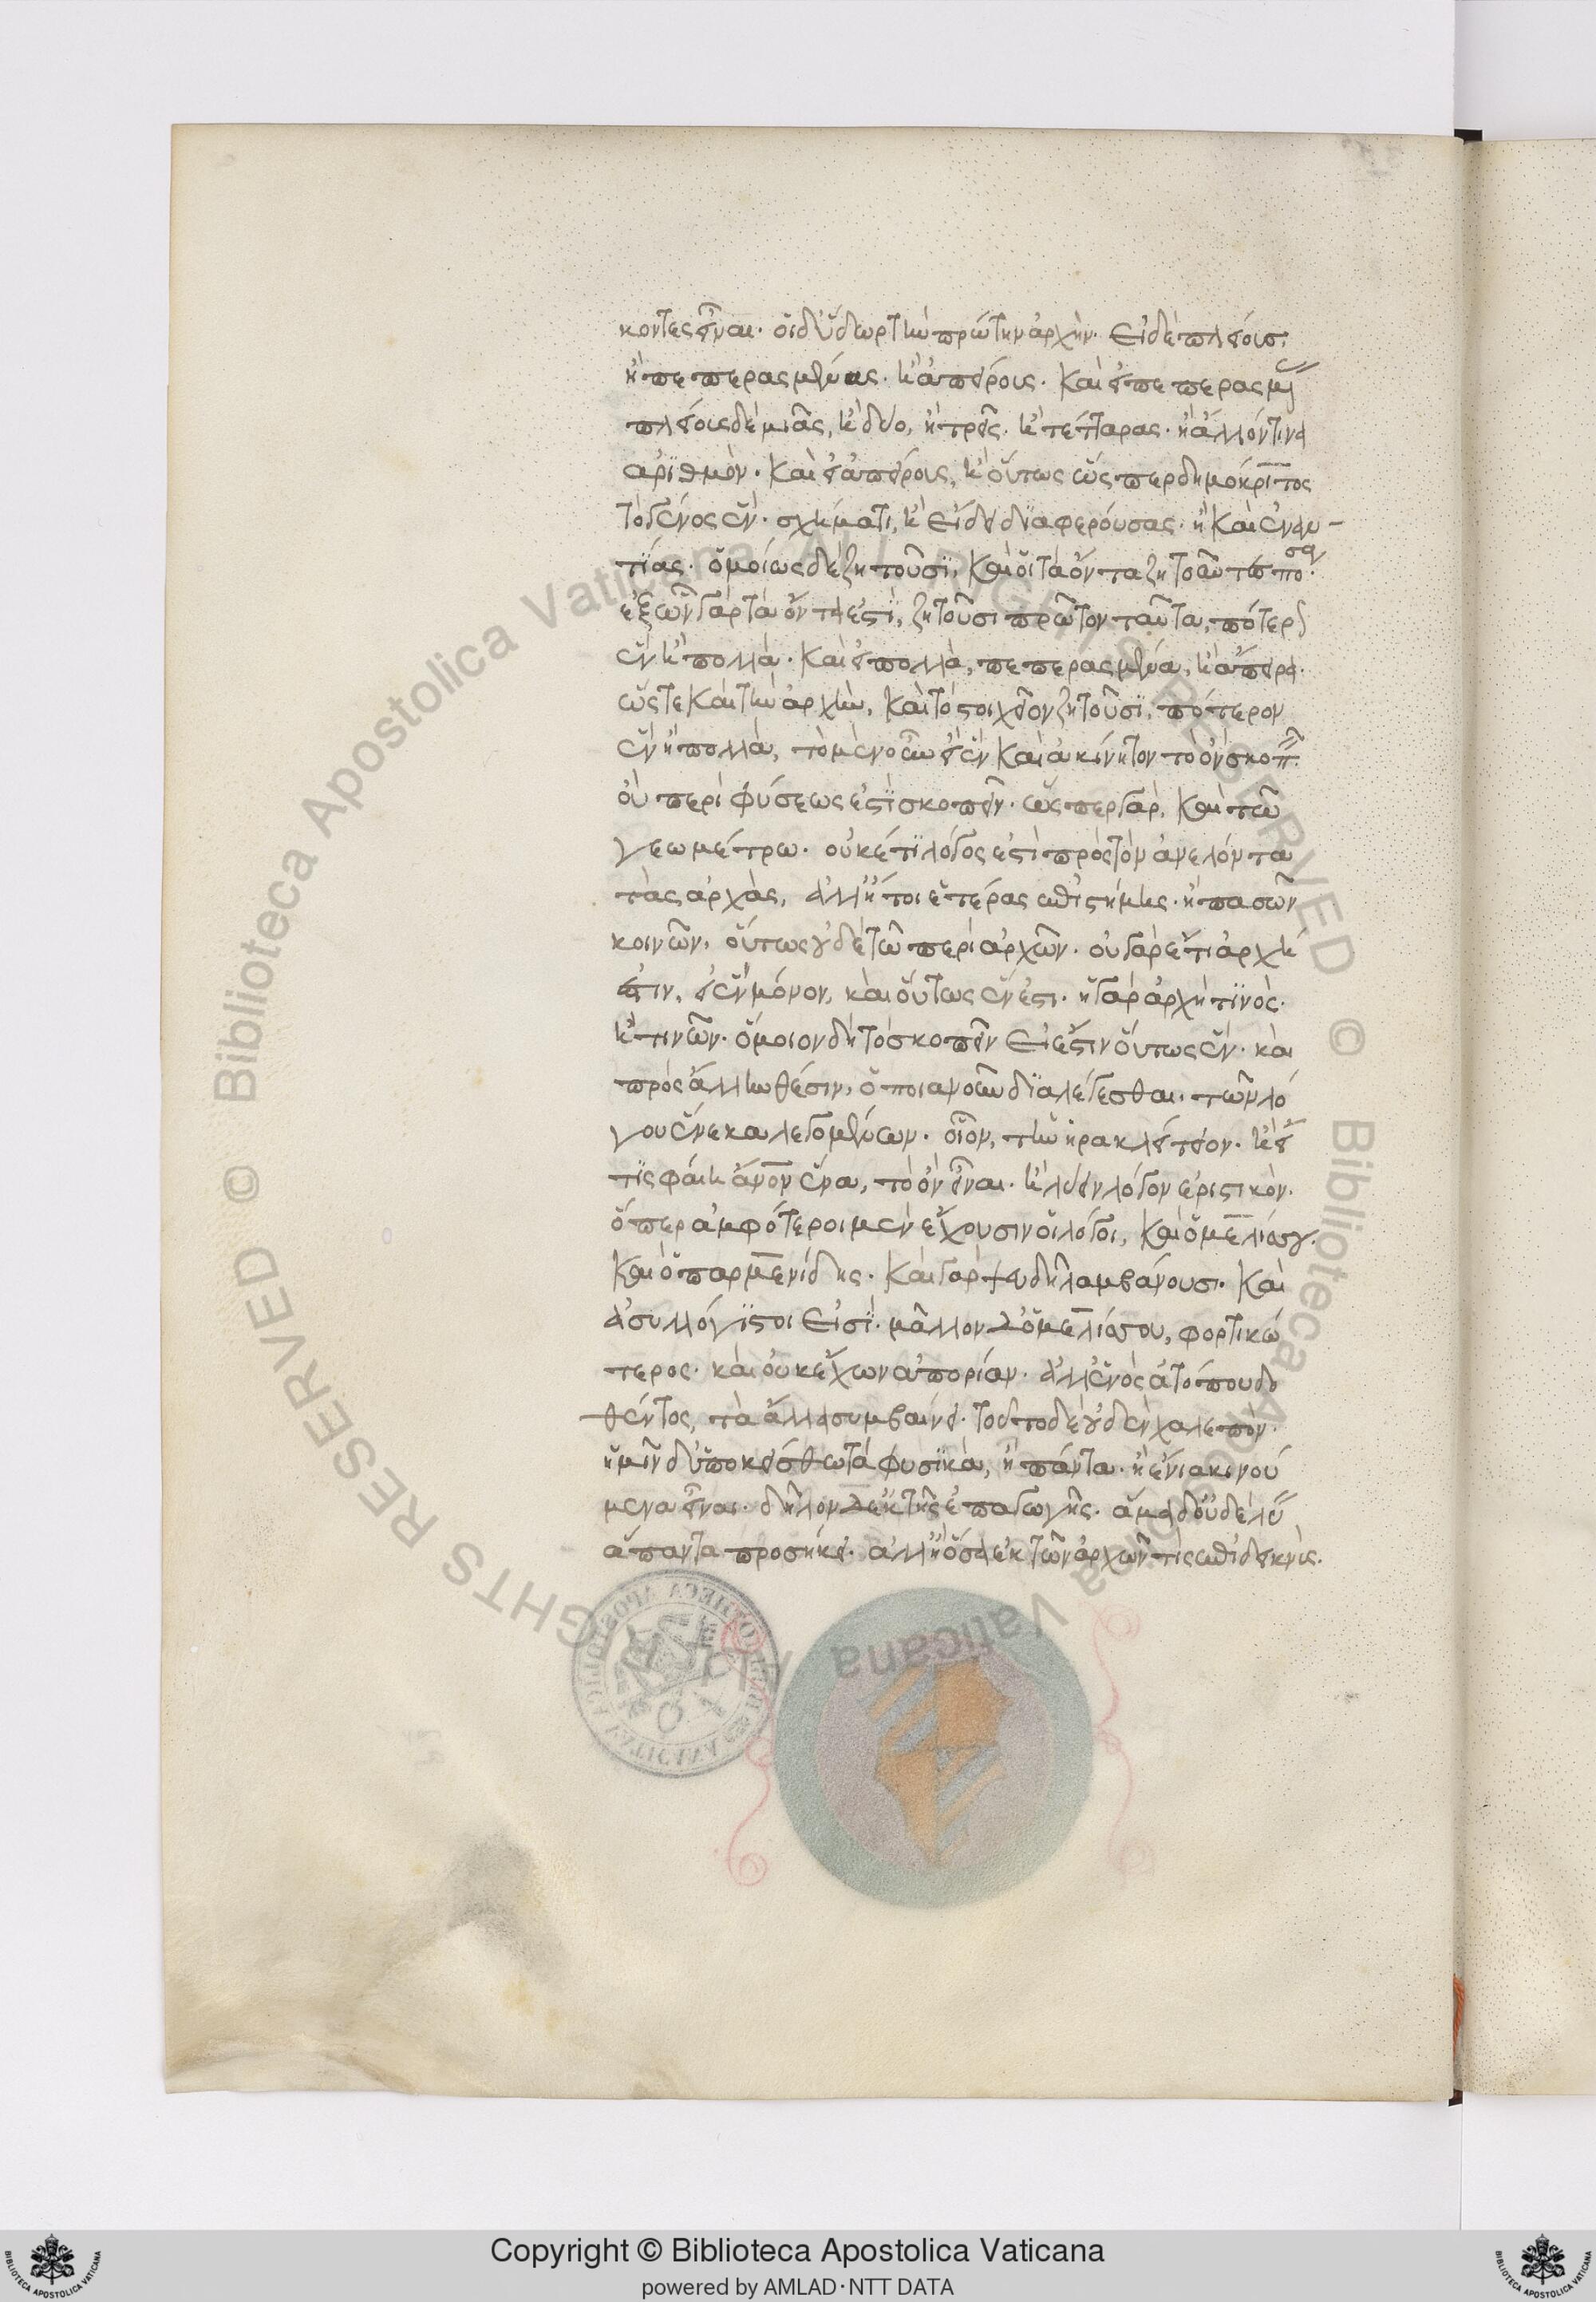 κοντες εἶναι· οἱ δ' ὕδωρ τὴν πρώτην ἀρχήν· εἰ δὲ πλείους·
ἢ πεπερασμένας· ἢ ἀπείρους· καὶ εἰ πεπερασμ
πλείους δὲ μιᾶς, ἢ δύο, ἢ τρεῖς· ἢ τέτταρας· ἢ ἄλλόν τινα
ἀρϊθμὸν· καὶ εἰ ἀπείρους, ἢ οὕτως ὥσπερ δημόκριτος
τὸ γένος ἓν· σχήματι, ἢ εἴδει διαφερούσας· ἢ καὶ ἐναν-
τίας· ὁμοίως δὲ ζητοῦσϊ, καὶ οἱ τὰ ὄντα ζητοῦντες πόσα·
ἐξ ὧν γὰρ τὰ ὄντα ἐστὶ, ζητοῦσι πρῶτον ταῦτα, πότερον
ἓν ἢ πολλὰ· καὶ εἰ πολλὰ, πεπερασμένα, ἢ ἄπειρα·
ὥστε καὶ τὴν ἀρχὴν, καὶ τὸ στοιχεῖον ζητοῦσϊ, πότερον
ἓν ἢ πολλὰ, τὸ μὲν οὖν εἰ ἓν καὶ ἀκίνητον τὸ ὂν σκοπ
οὐ περὶ φύσεως ἐστὶ σκοπεῖν· ὥσπερ γὰρ, καὶ τῶ
γεωμέτρω· οὐκέτϊ λόγος ἐστὶ πρὸς τὸν ἀνελόντα
τὰς ἀρχὰς, ἀλλ' ἤτοι ἑτέρας ἐπιστήμης· ἢ πασῶν
κοινῶν, οὕτως οὐδὲ τῶ περὶ ἀρχῶν· οὐ γὰρ ἔτι ἀρχὴ
ἐστιν, εἰ ἓν μόνον, καὶ οὕτως ἓν ἐστι· ἡ γὰρ ἀρχὴ τϊνὸς·
ἢ τινῶν· ὅμοιον δὴ τὸ σκοπεῖν εἰ ἔστιν οὕτως ἓν· καὶ
πρὸς ἄλλην θέσιν, ὁποιανοῦν διαλέγεσθαι· τῶν λό
γου ἕνεκα λεγομένων· οἷον, τὴν ἡρακλείτειον· ἢ εἴ
τϊς φαίη ἄνον ἕνα, τὸ ὂν εἶναι· ἢ λύειν λόγον ἐριστικὸν·
ὅπερ ἀμφότεροι μὲν ἔχουσιν οἱ λόγοι, καὶ ὁ μελίσσου·
καὶ ὁ παρμενίδης· καὶ γὰρ ψευδῆ λαμβάνουσι· καὶ
ἀσυλλόγϊστοι εἰσϊ· μᾶλλον δ' ὁ μελίσσου, φορτικώ
τερος· καὶ οὐκ ἔχων ἀπορίαν· ἀλλ' ἑνὸς ἀτόπου δο
θέντος, τὰ ἄλλα συμβαίνει· τοῦτο δὲ οὐδὲν χαλεπὸν·
ἡμῖν δ' ὑποκείσθω τὰ φυσϊκὰ, ἢ πάντα· ἢ ἔνια κινού
μενα εἶναι· δῆλον δ' ἐκ τῆς ἐπαγωγῆς· ἅμα δ' οὐδὲ λύ
ἅπαντα προσήκει· ἀλλ' ἢ ὅσα ἐκ τῶν ἀρχῶν τὶς ἐπιδεικνὺς·
Copyright © Biblioteca Apostolica Vaticana
powered by AMLAD·NTT DATA